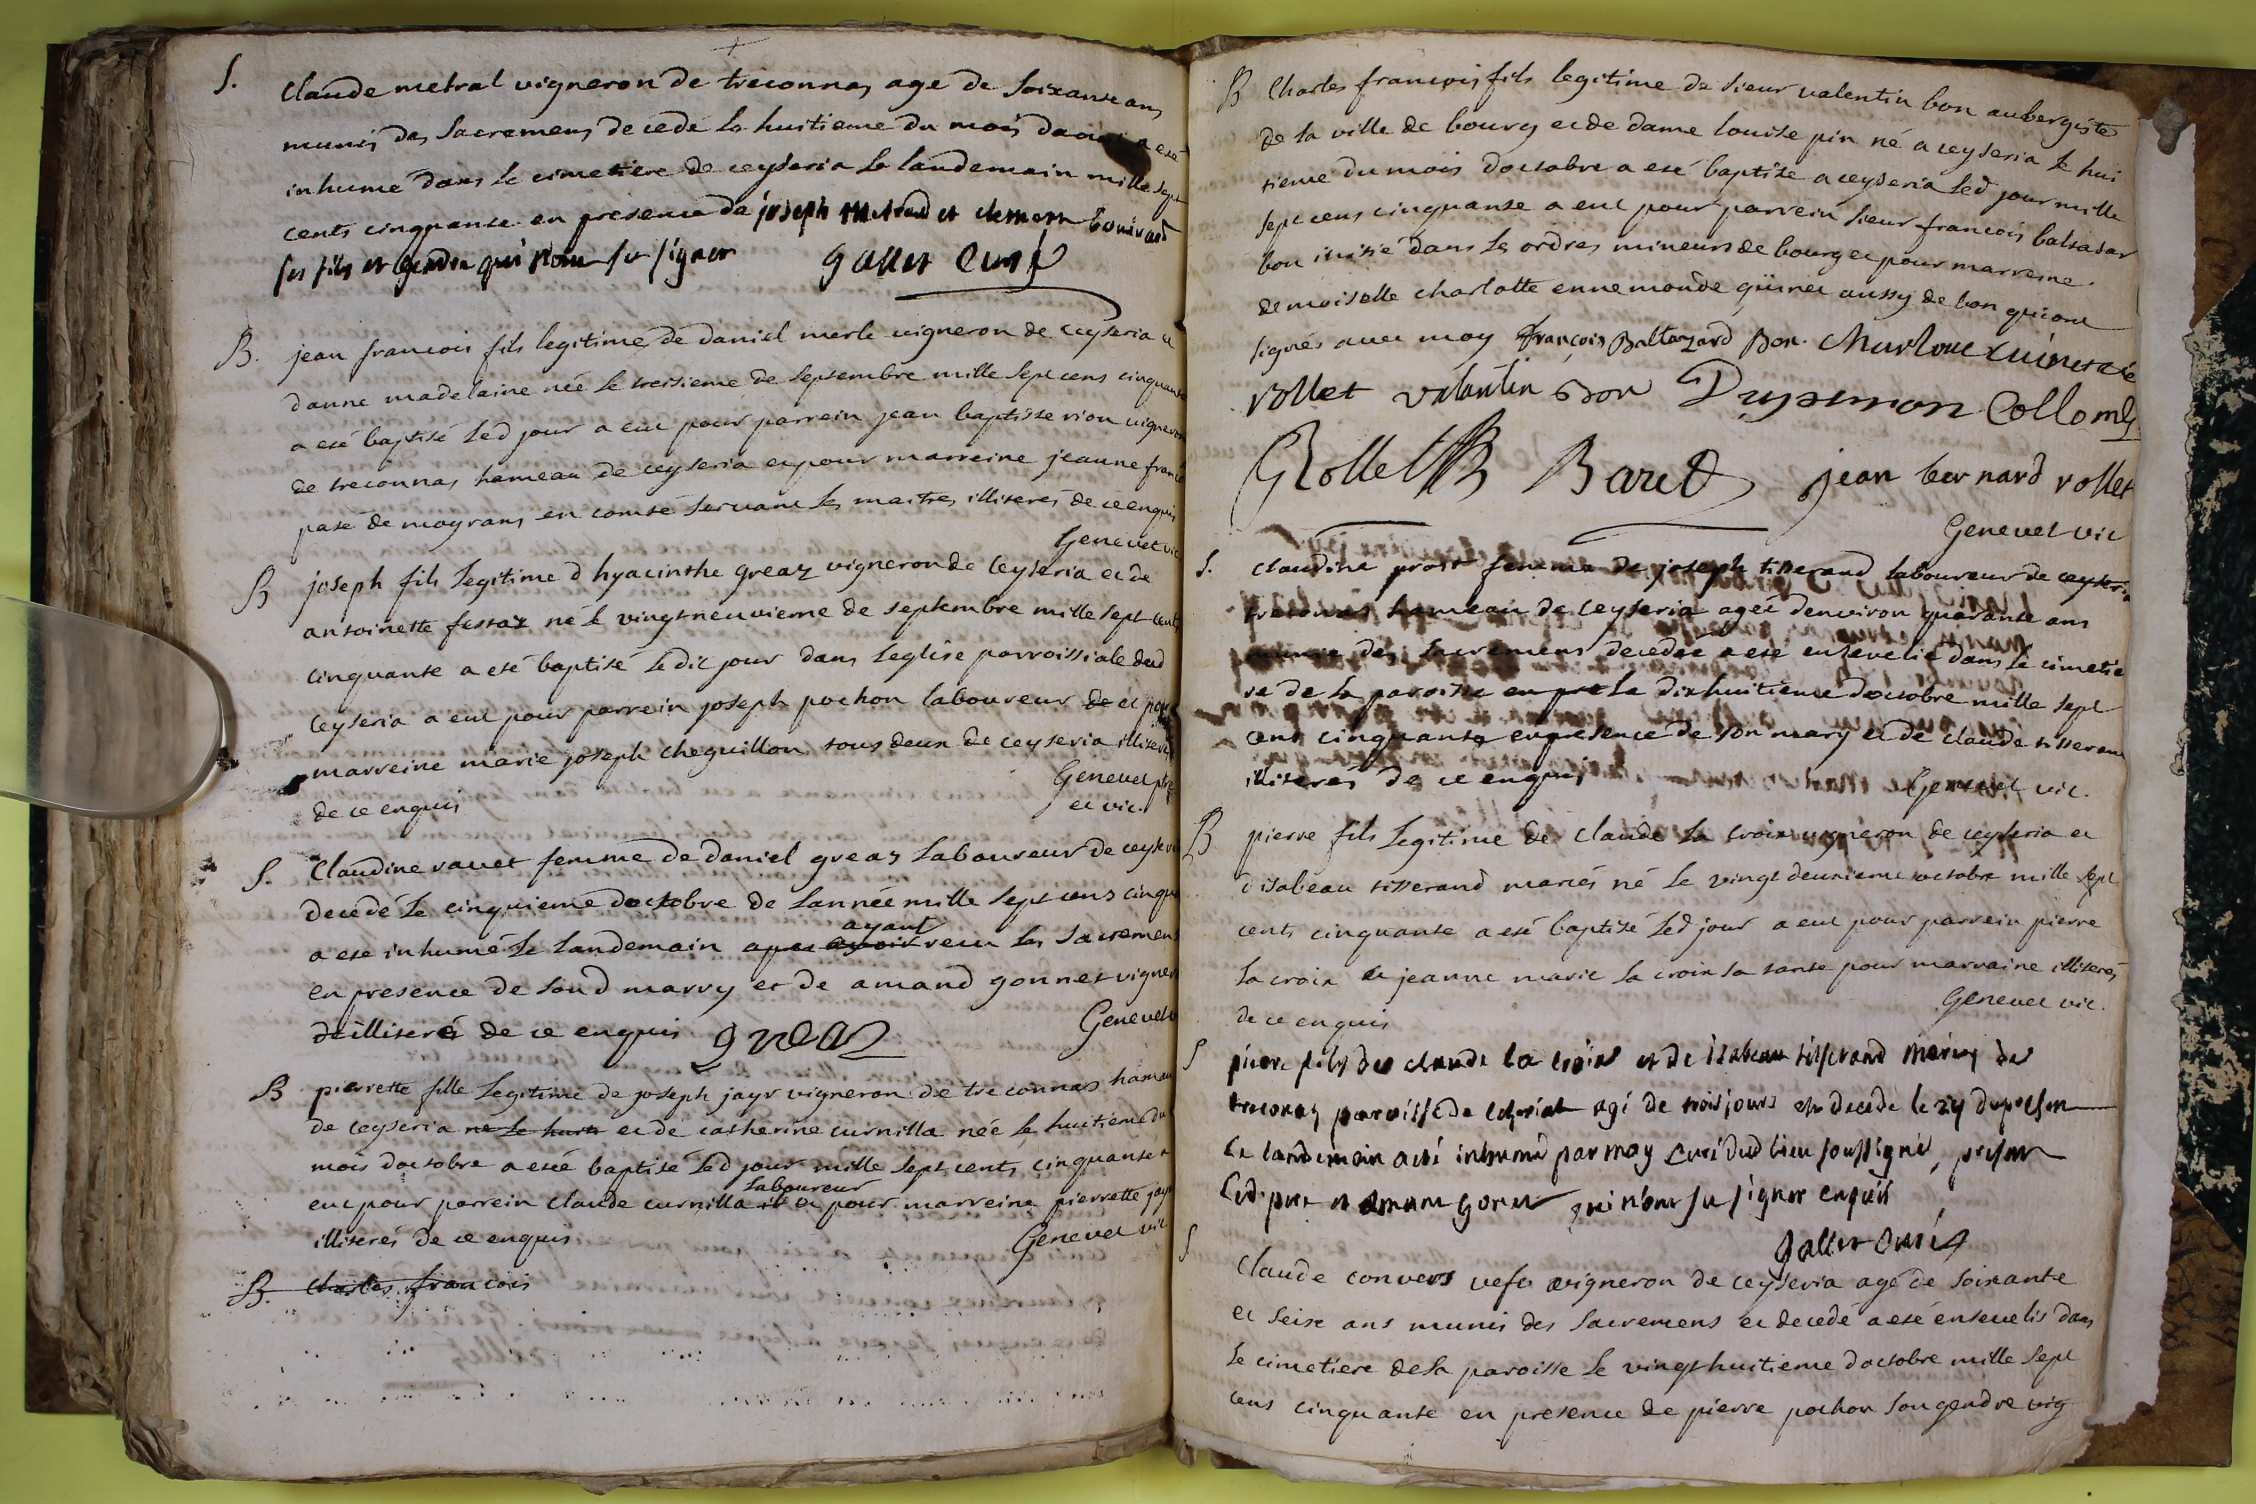 S. Claude metral vigneron de treconnas age de soixante ans
munis des sacremens decedé le huitieme du mois a eté
inhume dans le cimetiere de ceyseria le landemain mille sept
cents cinquante en presence de joseph metral et clement bonivard
ses fils et gendre qui nont su signer Gallet curé
B. jean francois fils legitime de daniel merle vigneron de ceyseria et
danne madelaine née le treisieme de septembre mille sept cens cinquante
a eté baptisé led jour a eut pour parrein jean baptiste rion vigneron
de treconnas hameau de ceyseria et pour marreine jeanne
paté de moyrans en comté servant les maitres illiterés de ce enquis
Genevet vic
B joseph fils legitime d hyacinthe greaz vigneron de Ceyseria et de
antoinette festaz né le vingt neuvieme de septembre mille sept cents
cinquante a eté baptisé ledit jour dans leglise parroissiale dud
Ceyseria a eut pour parrein joseph pochon laboureur de et pour
marreine marie joseph cheguillon tous deux de ceyseria illiterés
de ce enquis Genevet ptre
et vic.
S. Claudine ravet femme de daniel greaz laboureur de ceyseria
decedé le cinquieme doctobre de lannée mille sept cens cinquante
a ete inhumé le landemain apres avoir ayant receu les sacremens
en presence de sond marry et de amand gonnet vigneron
de illiterés de ce enquis greaz Genevet
B pierrette fille legitime de joseph jayr vigneron de treconnas hameau
de ceyseria né le huit et de catherine curnilla née le huitieme du
mois doctobre a eté baptisé led jour mille sept cents cinquante a
eut pour parrein claude curnilla laboureur et pour marreine pierrette jayr
illiterés de ce enquis Genevet vic
B. Charles francois
B Charles françois fils legitime de sieur valentin bon aubergiste
de la ville de bourg et de dame louise pin né a ceyseria le hui
tieme du mois doctobre a eté baptisé a ceyseria led jour mille
sept cens cinquante a eut pour parrein sieur françois baltasar
bon initié dans les ordres mineurs de bourg et pour marreine
demoiselle charlotte ennemonde güinet aussy de bon qui ont
signés avec moy François Baltazard Bon. Charlotte
rollet valantin Bon Duparmon Collomb
Rollet Baret jean bernard rollet
Genevet vic
S. Claudine prost femme de joseph tisserand laboureur de ceyseria
treconnas hameau de Ceyseria ageé denviron quarante ans
munie des sacremens decedée a eté ensevelie dans le cimetie
re de la paroisse en pre le dixhuitieme doctobre mille sept
cent cinquante en presence de son mary et de claude tisserand
illiterés de ce enquis Genevet vic.
B pierre fils legitime de Claude la croix vigneron de ceyseria et
d isabeau tisserand mariés né le vingt deuxieme octobre mille sept
cents cinquante a eté baptisé led jour a eut pour parrein pierre
la croix et jeanne marie la croix sa tante pour marraine illiterés
de ce enquis Genevet vic.
S pierre fils de claude la croix et de isabeau tisserand mariez de
treconas paroisse de ceyseriat agé de trois jours est decede le 24 du present
le landemain a eté inhumé par moy curé dud lieu soussigné, present
led. pere et amant gonet qui n'ont su signer enquis
Gallet curé
S Claude convers vefs vigneron de ceyseria agé de soixante
et seise ans munis des sacremens et decedé a eté ensevelis dans
le cimetiere de la paroisse le vingt huitieme doctobre mille sept
cens cinquante en presence de pierre pochon son gendre vig